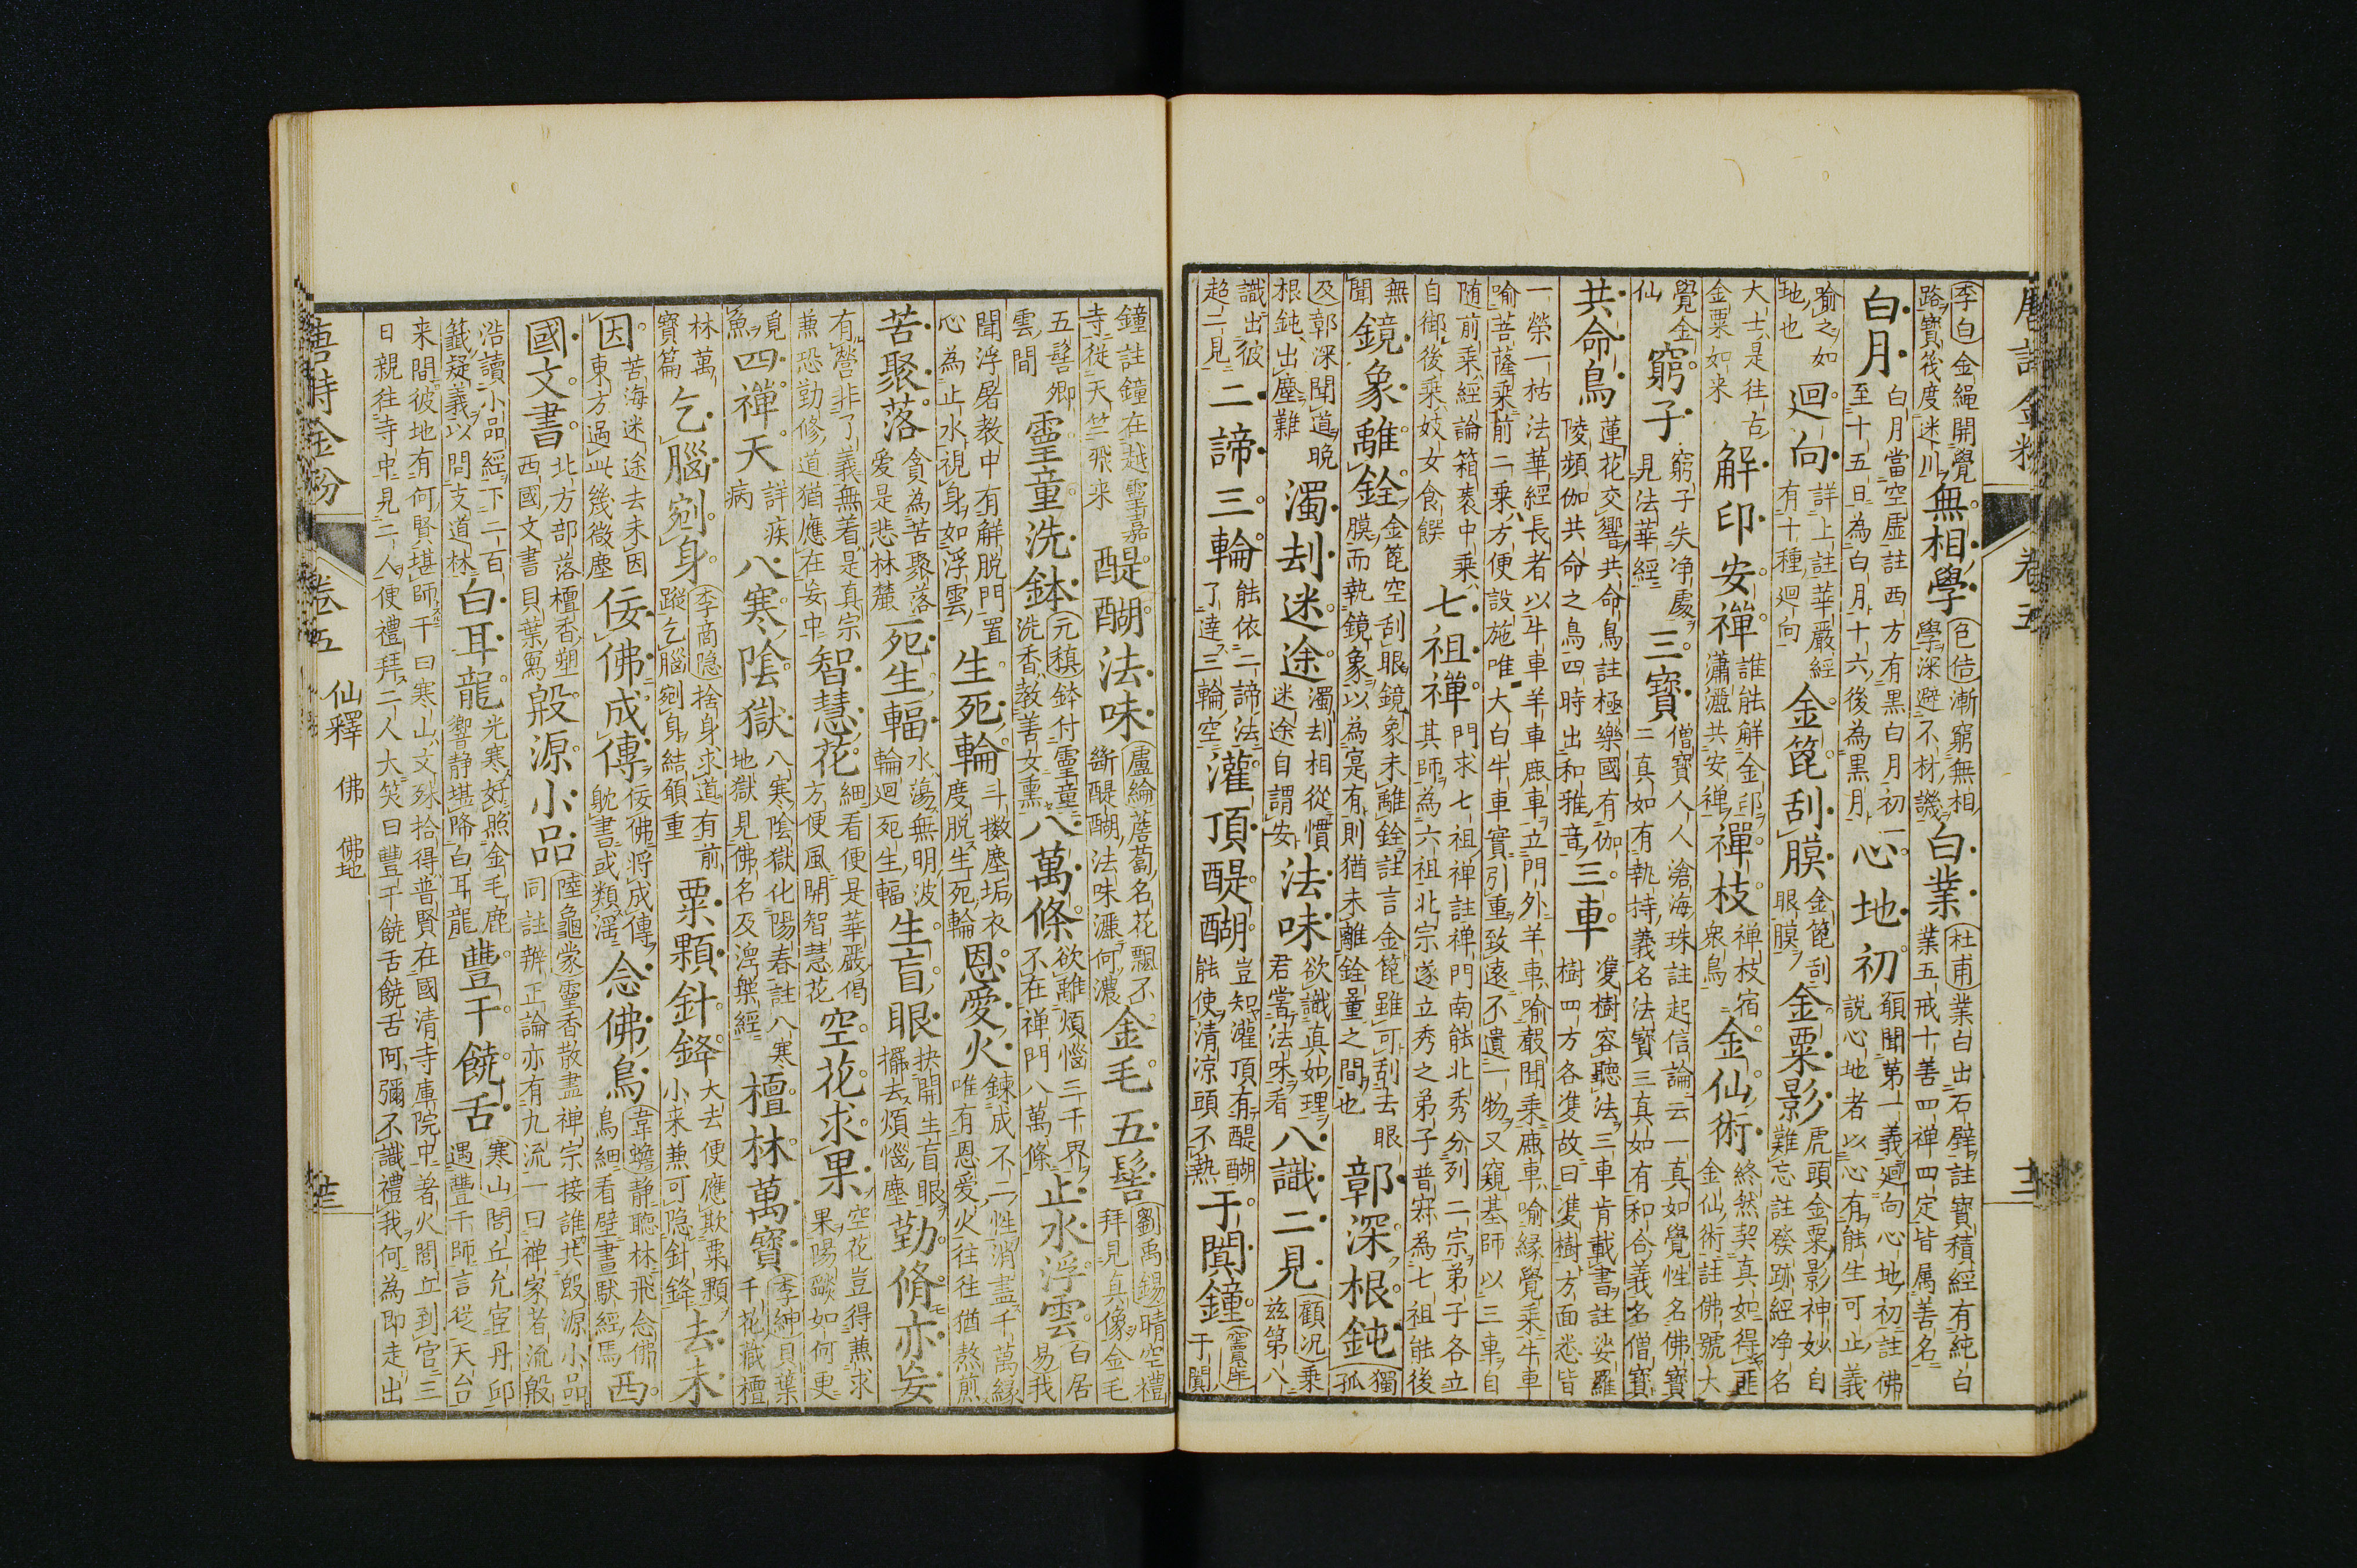 唐詩金粉 卷五
李白金繩開覺路寶筏度迷川無相學包佶漸窮無相學深避不材譏白業杜甫業白出石壁註寶積經有純白業五戒十善四禅四定皆属善名
白月白月當空虛註西方有黑白月初一至十五日為白月十六後為黒月心地初願聞第一義廻向心地初註佛説心地者以心有能生可止義
喻之如地也廻向詳上註華嚴經有十種廻向金篦刮膜金篦刮眼膜金粟影虎頭金粟影神妙自難忘註發跡經净名
大士是往古金粟如来解印安禪誰能解金印瀟灑共安禅禪枝禅枝宿衆鳥金仙術終然契真如得匪金仙術註佛號大
覺金仙窮子窮子失净處見法華經三寶僧寶人人滄海珠註起信論云一真如覺性名佛寶二真如有執持義名法寶三真如有和合義名僧寶
共命鳥蓮花交響共命鳥註極樂國有伽陵頻伽共命之鳥四時出和雅音三車雙樹容聽法三車肯載書註娑羅樹四方各雙故曰雙樹方面悉皆
一榮一枯法華經長者以牛車羊車鹿車立門外羊車喻聲聞乘鹿車喻縁覺乗牛車喻菩薩乘前二乗方便設施唯大白牛車實引重致遠不遺一物又窺基師以三車自
随前乘經論箱袠中乘自御後乘妓女食饌七祖禪門求七祖禅註禅門南能北秀分列二宗弟子各立其師為六祖北宗遂立秀之弟子普寂為七祖能後
無聞鏡象離銓金篦空刮眼鏡象未離銓註言金篦雖可刮去眼膜而執鏡象以為寔有則猶未離銓量之間也郭深根鈍獨孤
及郭深聞道晚根鈍出塵難濁刦迷途濁刦相從慣迷途自謂安法味欲識真如理君當法味看八識二見顧况乗兹第八
識出彼超二見二諦三輪能依二諦法了達三輪空灌頂醍醐豈知灌頂有醍醐能使清涼頭不熱于闐鐘竇庠于闐
鐘註鐘在越靈嘉寺從天竺飛来醍醐法味盧綸薝蔔名花飄不斷醍醐法味灑何濃金毛五髻劉禹錫晴空禮拜見真像金毛
五髻卿雲間靈童洗鉢元稹鉢付靈童洗香教善女熏八萬條欲離煩惱三千界不在禅門八萬條止水浮雲白居易我
聞浮屠教中有解脱門置心為止水視身如浮雲生死輪斗擻塵垢衣度脱生死輪恩愛火鍊成不二性消盡千萬縁唯有恩愛火往往猶熬煎
苦聚落貪為苦聚落爱是悲林麓死生輻水蕩無明波輪廻死生輻生盲眼抉開生盲眼擺去煩惱塵勤脩亦妄
有營非了義無着是真宗兼恐勤修道猶應在妄中智慧花細看便是華嚴偈方便風開智慧花空花求果空花豈得兼求果陽燄如何更
覓魚四禪天詳疾病八寒陰獄八寒陰獄化陽春註八寒地獄見佛名及涅槃經檀林萬寶李紳貝葉千花藏檀
林萬寶篇乞腦剜身李商隐捨身求道有前蹤乞腦剜身結願重粟顆針鋒大去便應欺粟顆小来兼可隐針鋒去未
因苦海迷途去未因東方過此幾微塵佞佛成傳佞佛将成傳躭書或類滛念佛鳥韋蟾静聽林飛念佛鳥細看壁畫馱經馬西
國文書北方部落檀香塑西國文書貝葉寫殷源小品陸龜蒙靈香散盡禅宗接誰共殷源小品同註辨正論亦有九流一曰禅家者流殷
浩讀小品經下二百籖疑義以問支道林白耳龍光寒好照金毛鹿響静堪降白耳龍豐干饒舌寒山閭丘允宦丹邱遇豐干師言從天台
来間彼地有何賢堪師干曰寒山文殊拾得普賢在國清寺庫院中着火閭丘到官三日親往寺中見二人便禮拜二人大笑曰豐干饒舌饒舌阿彌不識禮我何為即走出
唐詩金粉 卷五 仙釋 佛 佛地